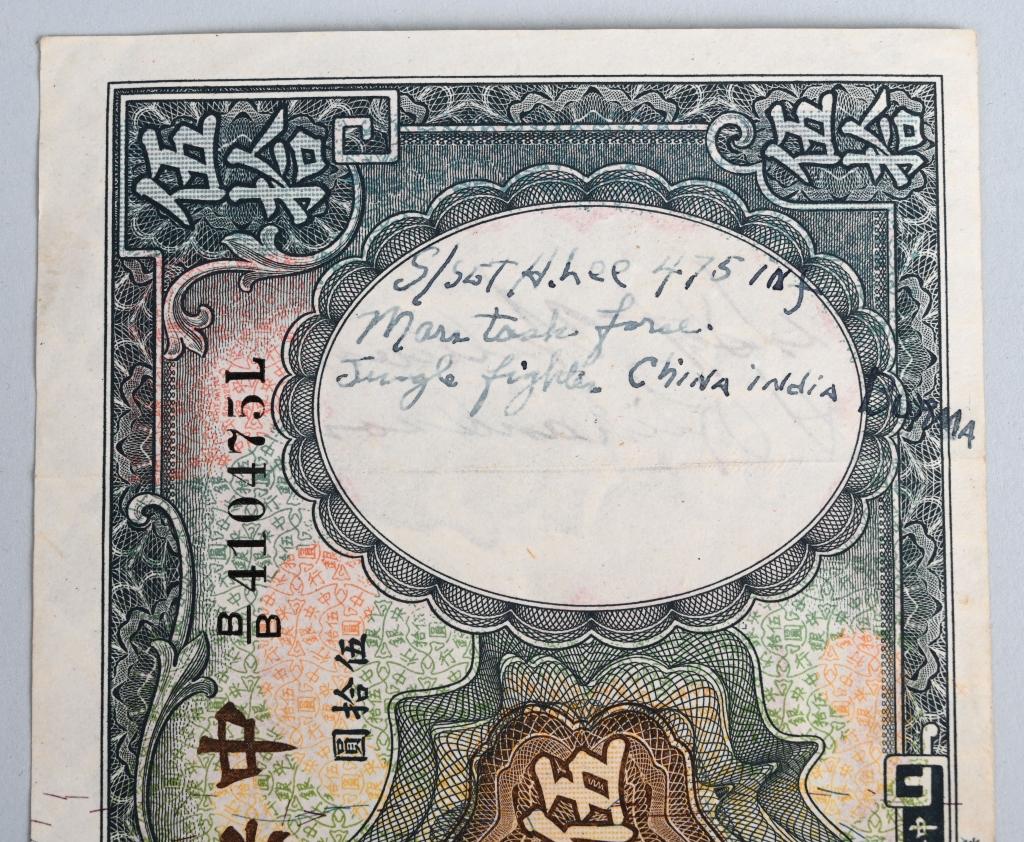 伍拾
伍拾
S/SGT H. Lee 475 Inf
Mars task force.
Jungle fighter China india Burma
B/B 410475L
伍拾圓
中
伍
中